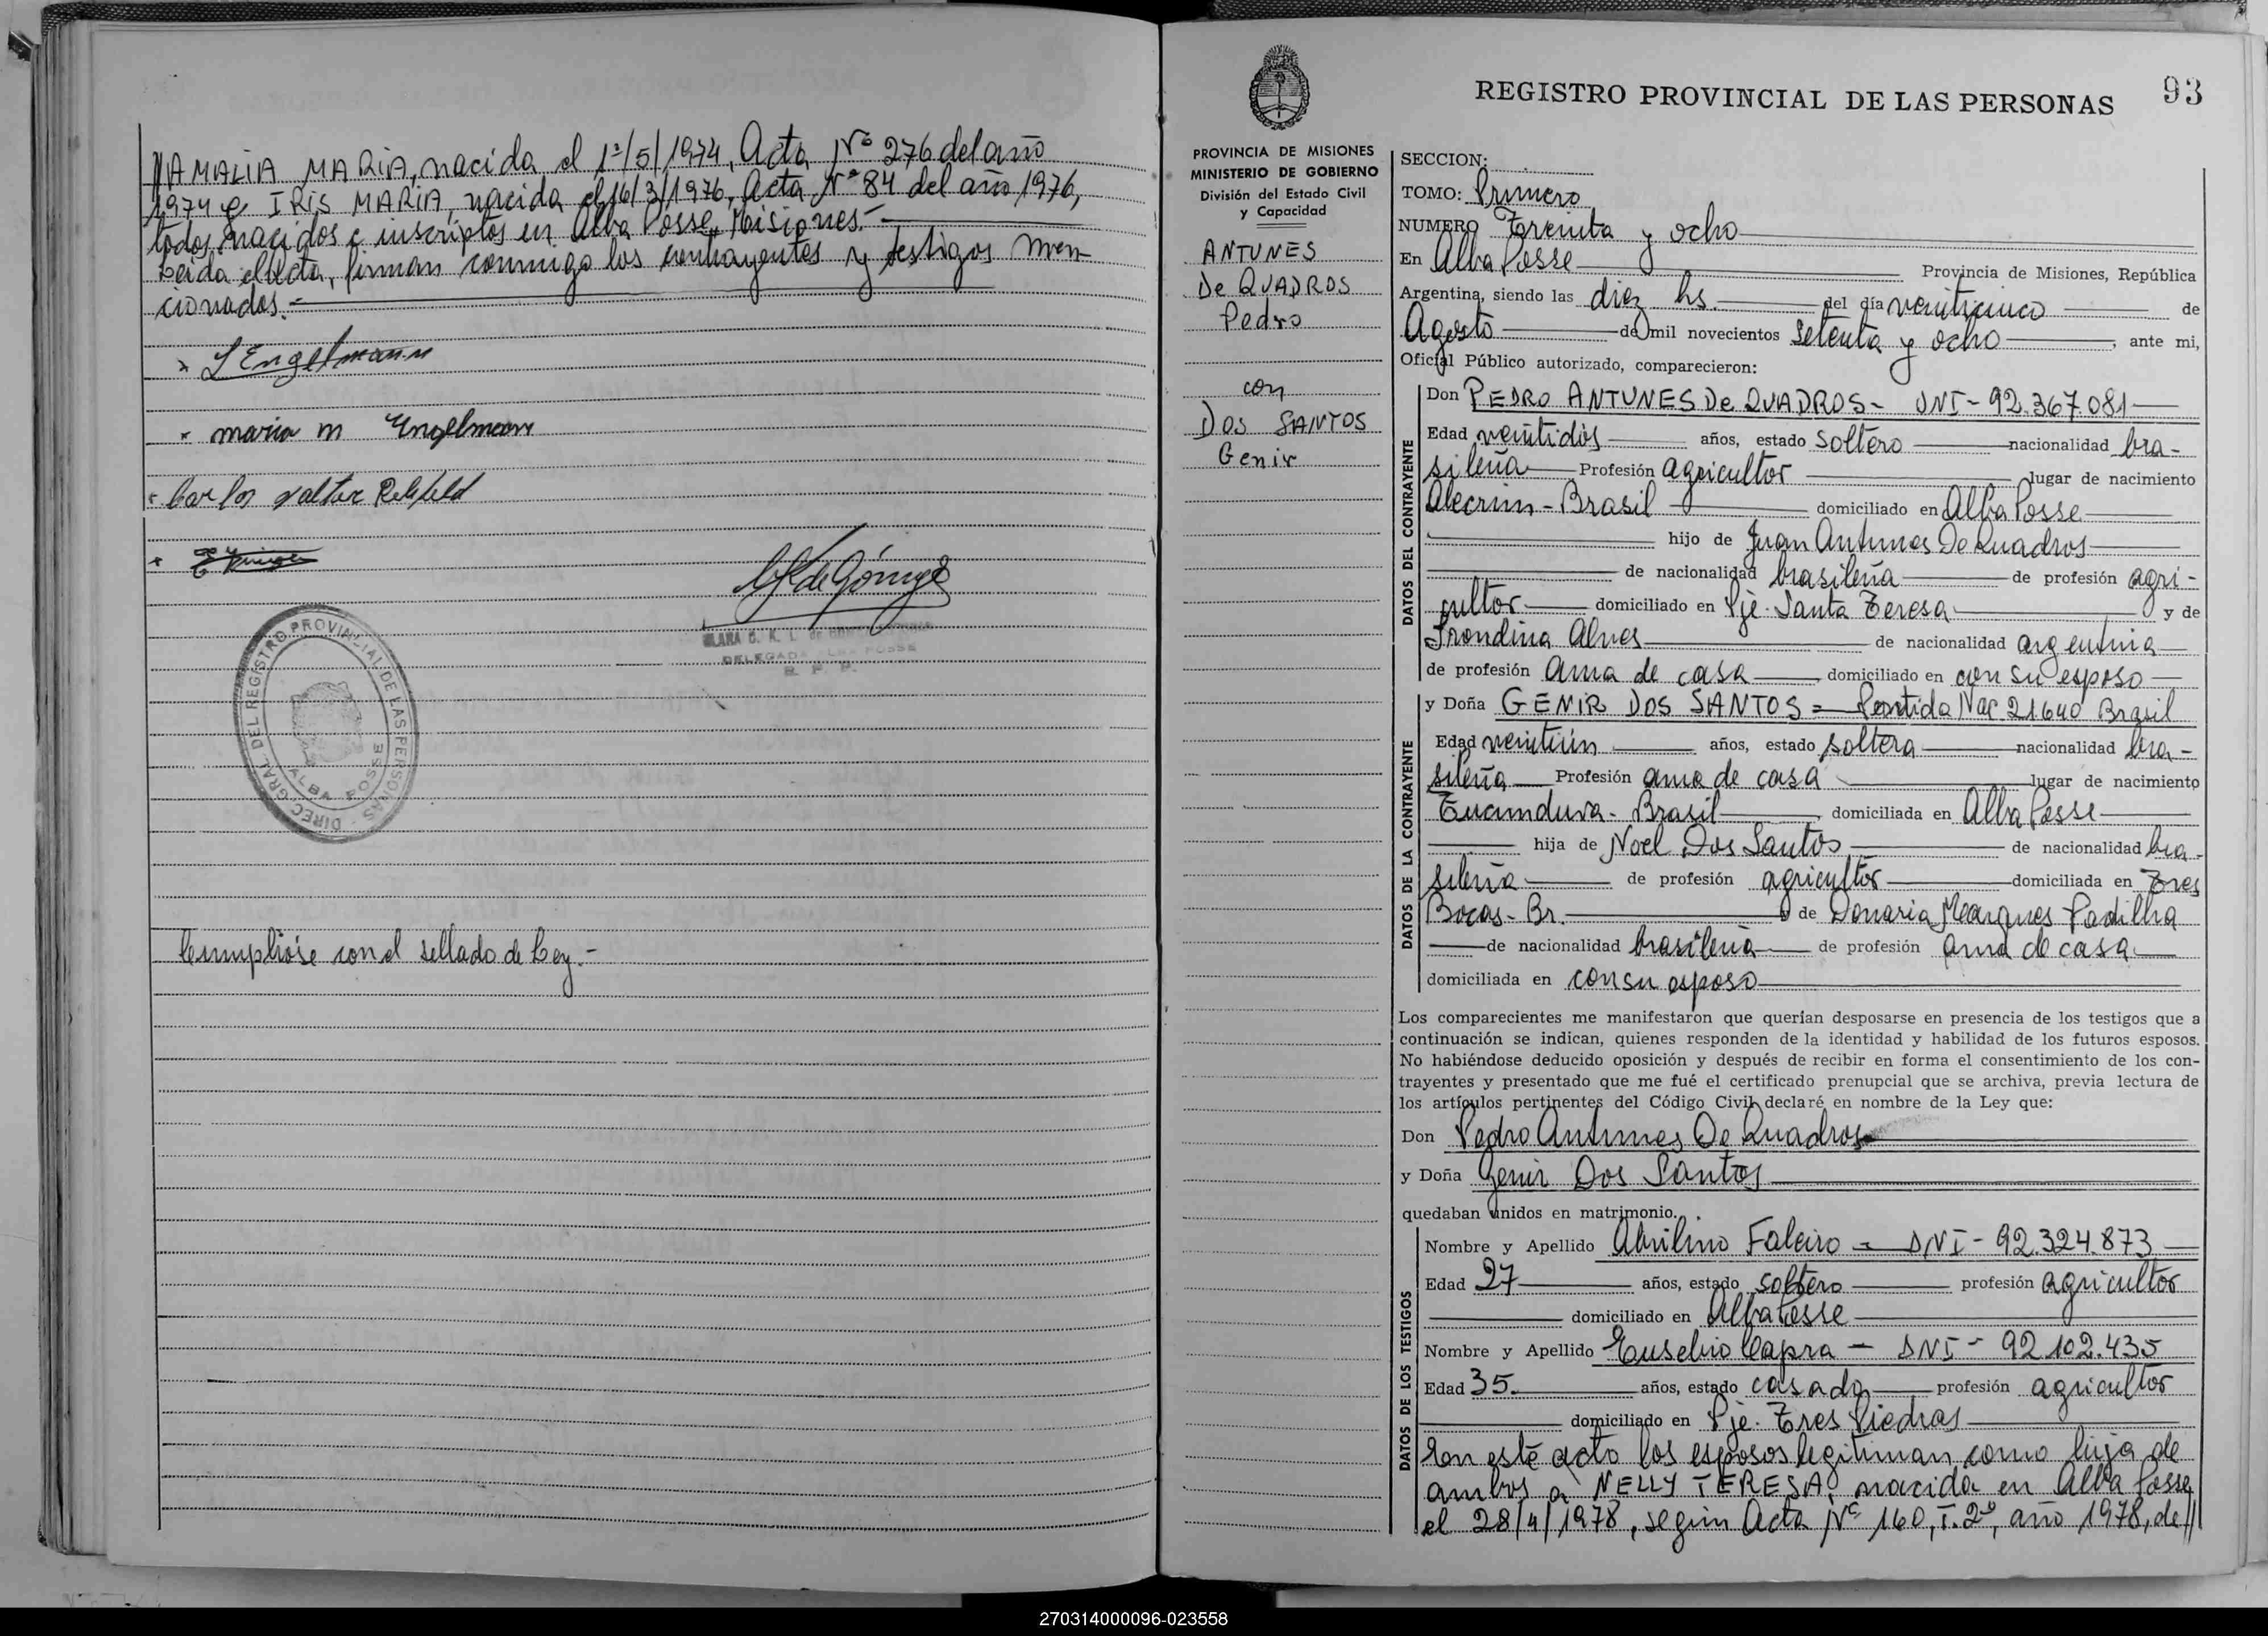 //AMALIA MARIA, nacida el 1º/5/1974, Acta Nº 276 del año
1974 e IRIS MARIA, nacida el 16/3/1976, Acta Nº 84 del año 1976,
todos nacidos e inscriptos en Alba Posse, Misiones.-
Leida el acta, firman conmigo los contrayentes y testigos men
cionados.-
x L Engelmann
x maria m Engelmann
x Carlos Valter Rehfeld
x
CLARA C. K. L. de
DELEGADA ALBA POSSE
R. P. P.
DIREC. GRAL. DEL REGISTRO PROVINCIAL DE LAS PERSONAS -
ALBA POSSE
Cumplióse con el sellado de Ley.-
93
REGISTRO PROVINCIAL DE LAS PERSONAS
PROVINCIA DE MISIONES
MINISTERIO DE GOBIERNO
División del Estado Civil
y Capacidad
ANTUNES
De QUADROS
Pedro
con
DOS SANTOS
Genir
SECCION:
TOMO: Primero
NUMERO Treinta y ocho
En Alba Posse Provincia de Misiones, República
Argentina, siendo las diez hs. del día veinticinco de
Agosto de mil novecientos setenta y ocho, ante mi,
Oficial Público autorizado, comparecieron:
DATOS DEL CONTRAYENTE
Don PEDRO ANTUNES De QUADROS - DNI - 92.367.081
Edad veintidós años, estado soltero nacionalidad bra-
sileña Profesión agricultor lugar de nacimiento
Alecrim - Brasil domiciliado en Alba Posse
hijo de Juan Antunes De Quadros
de nacionalidad brasileña de profesión agri-
cultor domiciliado en Pje. Santa Teresa y de
Frondina Alves de nacionalidad argentina
de profesión ama de casa domiciliado en con su esposo
DATOS DE LA CONTRAYENTE
y Doña GENIR DOS SANTOS = Partida Nac 21640 Brasil
Edad veintiún años, estado soltera nacionalidad bra-
sileña Profesión ama de casa lugar de nacimiento
Tucunduva - Brasil domiciliada en Alba Posse
hija de Noel Dos Santos de nacionalidad bra-
sileña de profesión agricultor domiciliada en Tres
Bocas - Br. y de Donaria Marques Padilha
de nacionalidad brasileña de profesión ama de casa
domiciliada en con su esposo
Los comparecientes me manifestaron que querían desposarse en presencia de los testigos que a
continuación se indican, quienes responden de la identidad y habilidad de los futuros esposos.
No habiéndose deducido oposición y después de recibir en forma el consentimiento de los con-
trayentes y presentado que me fué el certificado prenupcial que se archiva, previa lectura de
los artículos pertinentes del Código Civil declaré en nombre de la Ley que:
Don Pedro Antunes De Quadros
y Doña Genir Dos Santos
quedaban unidos en matrimonio.
DATOS DE LOS TESTIGOS
Nombre y Apellido Abrilino Faleiro - DNI - 92.324.873
Edad 27 años, estado soltero profesión agricultor
domiciliado en Alba Posse
Nombre y Apellido Eusebio Capra - DNI - 92.102.435
Edad 35. años, estado casado profesión agricultor
domiciliado en Pje. Tres Piedras
Con este acto los esposos legitiman como hija de
ambos a NELLY TERESA, nacida en Alba Posse
el 28/4/1978, según Acta Nº 160, T. 2º, año 1978, de//
270314000096-023558